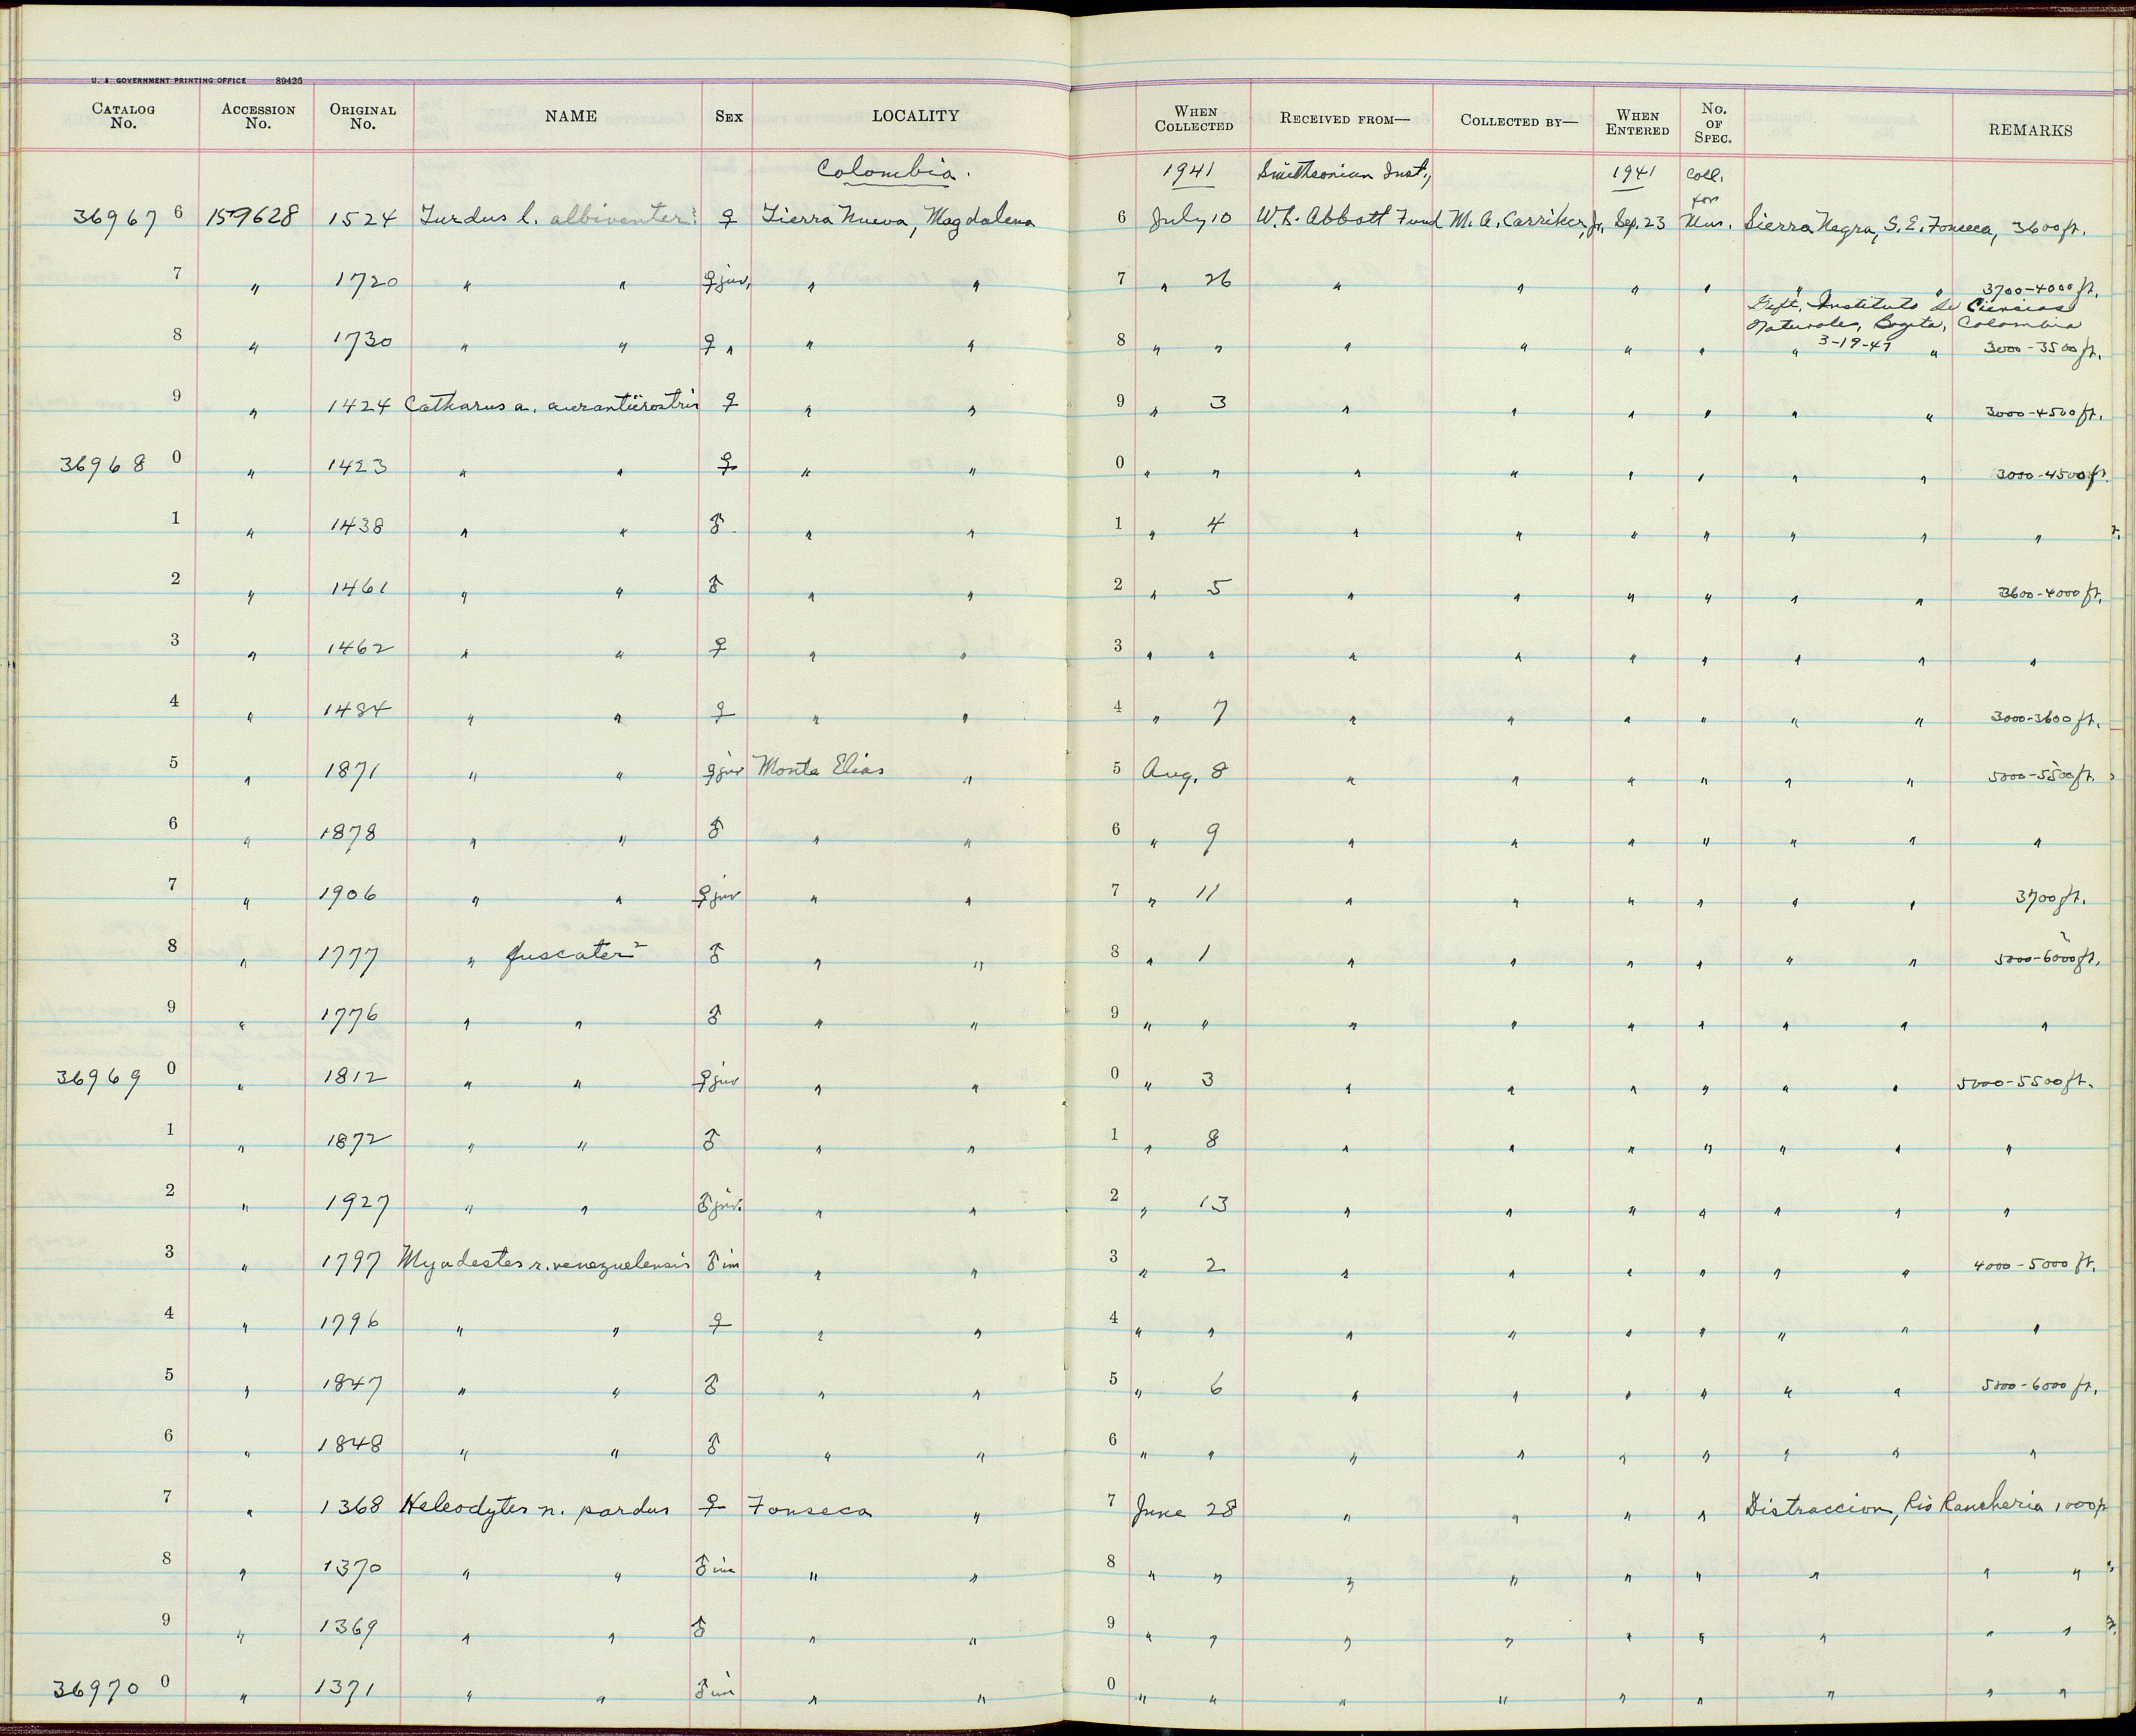 U. S. GOVERNMENT PRINTING OFFICE 89426
CATALOG No. ACCESSION No. ORIGINAL No. NAME SEX LOCALITY WHEN COLLECTED RECEIVED FROM— COLLECTED BY— WHEN ENTERED No. OF SPEC. REMARKS
Colombia. 1941 Smithsonian Inst., 1941 Coll. for
36967 6 159628 1524 Turdus l. albiventer ♀ Tierra Nueva, Magdalena 6 July 10 W. L. Abbott Fund M. A. Carriker, Jr. Sep. 23 Mus. Sierra Negra, S. E. Fonseca, 3600 ft.
7 " 1720 " " ♀ juv. " " 7 " 26 " " " " " " 3700-4000 ft.
Gift, Instituto de Ciencias
Naturales, Bogota, Colombia
3-19-47
8 " 1730 " " ♀ " " " 8 " " " " " " " " 3000-3500 ft.
9 " 1424 Catharus a. aurantiirostris ♀ " " 9 " 3 " " " " " " 3000-4500 ft.
36968 0 " 1423 " " ♀ " " 0 " " " " " " " " 3000-4500 ft.
1 " 1438 " " ♂ " " 1 " 4 " " " " " " "
2 " 1461 " " ♂ " " 2 " 5 " " " " " " 3600-4000 ft.
3 " 1462 " " ♀ " " 3 " " " " " " " " "
4 " 1484 " " ♀ " " 4 " 7 " " " " " " 3000-3600 ft.
5 " 1871 " " ♀ juv Monte Elias " 5 Aug. 8 " " " " " " 5000-5500 ft.
6 " 1878 " " ♂ " " 6 " 9 " " " " " " "
7 " 1906 " " ♀ juv " " 7 " 11 " " " " " " 3700 ft.
8 " 1777 " fuscater ♂ " " 8 " 1 " " " " " " 5000-6000 ft.
9 " 1776 " " ♂ " " 9 " " " " " " " " "
36969 0 " 1812 " " ♀ juv " " 0 " 3 " " " " " " 5000-5500 ft.
1 " 1872 " " ♂ " " 1 " 8 " " " " " " "
2 " 1927 " " ♂ juv. " " 2 " 13 " " " " " " "
3 " 1797 Myadestes r. venezuelensis ♂ im " " 3 " 2 " " " " " " 4000-5000 ft.
4 " 1796 " " ♀ " " 4 " " " " " " " " "
5 " 1847 " " ♂ " " 5 " 6 " " " " " " 5000-6000 ft.
6 " 1848 " " ♂ " " 6 " " " " " " " " "
7 " 1368 Heleodytes n. pardus ♀ Fonseca " 7 June 28 " " " " Distraccion, Rio Rancheria 1000 ft
8 " 1370 " " ♂ im " " 8 " " " " " " " " "
9 " 1369 " " ♂ " " 9 " " " " " " " " "
36970 0 " 1371 " " ♂ im " " 0 " " " " " " " " "